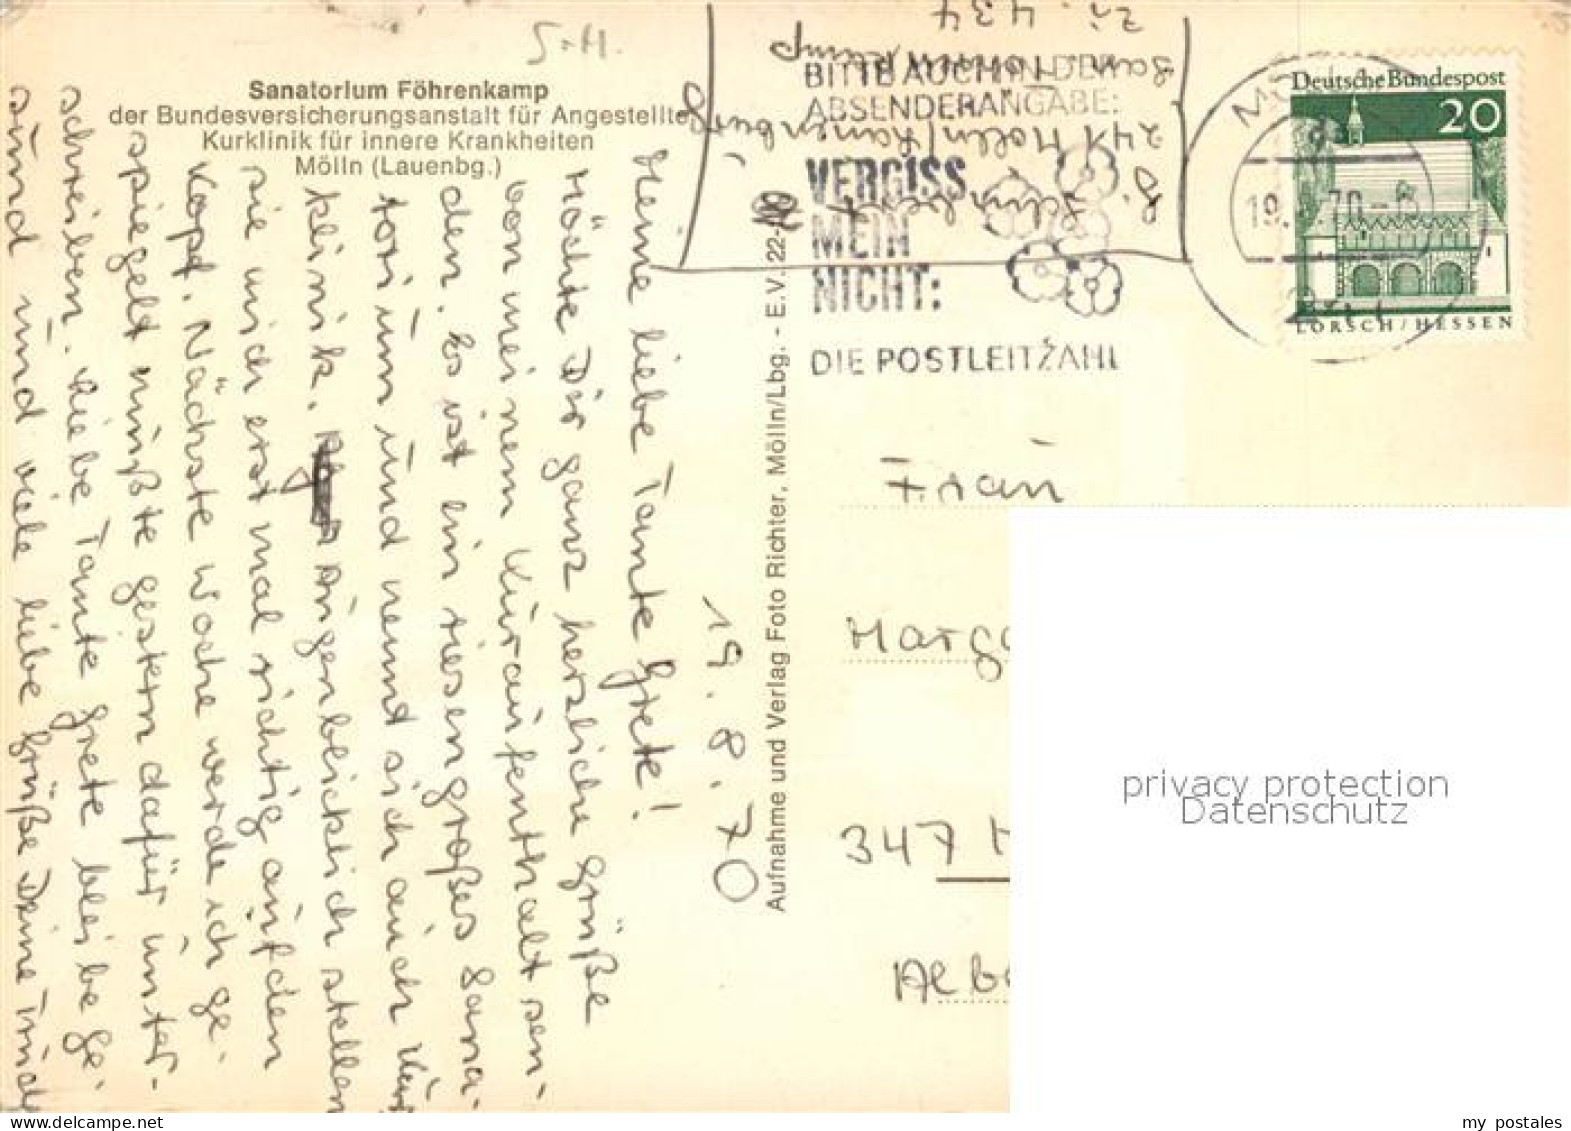 S-H.
Sanatorium Föhrenkamp
der Bundesversicherungsanstalt für Angestellte
Kurklinik für innere Krankheiten
Mölln (Lauenbg.)
19.8.70
Meine liebe Tante Grete!
Möchte Dir ganz herzliche Grüße
von meinem Kuraufenthalt sen-
den. Es ist ein riesengroßes Sana-
torium und nennt sich auch Kur
klinik. Augenblicklich stellen
sie mich erst mal richtig auf den
Kopf. Nächste Woche werde ich ge-
spiegelt mußte gestern dafür unter-
schreiben. Liebe Tante Grete bleibe ge-
sund und viele liebe Grüße Deine
Aufnahme und Verlag Foto Richter, Mölln/Lbg. - E.V. 22-
241 Mölln/Lauenburg
Zi. 434
BITTE AUCH IN DER
ABSENDERANGABE:
VERGISS
MEIN
NICHT:
DIE POSTLEITZAHL
19. 70-
Deutsche Bundespost
20
LORSCH/HESSEN
Frau
347
privacy protection
Datenschutz
my postales